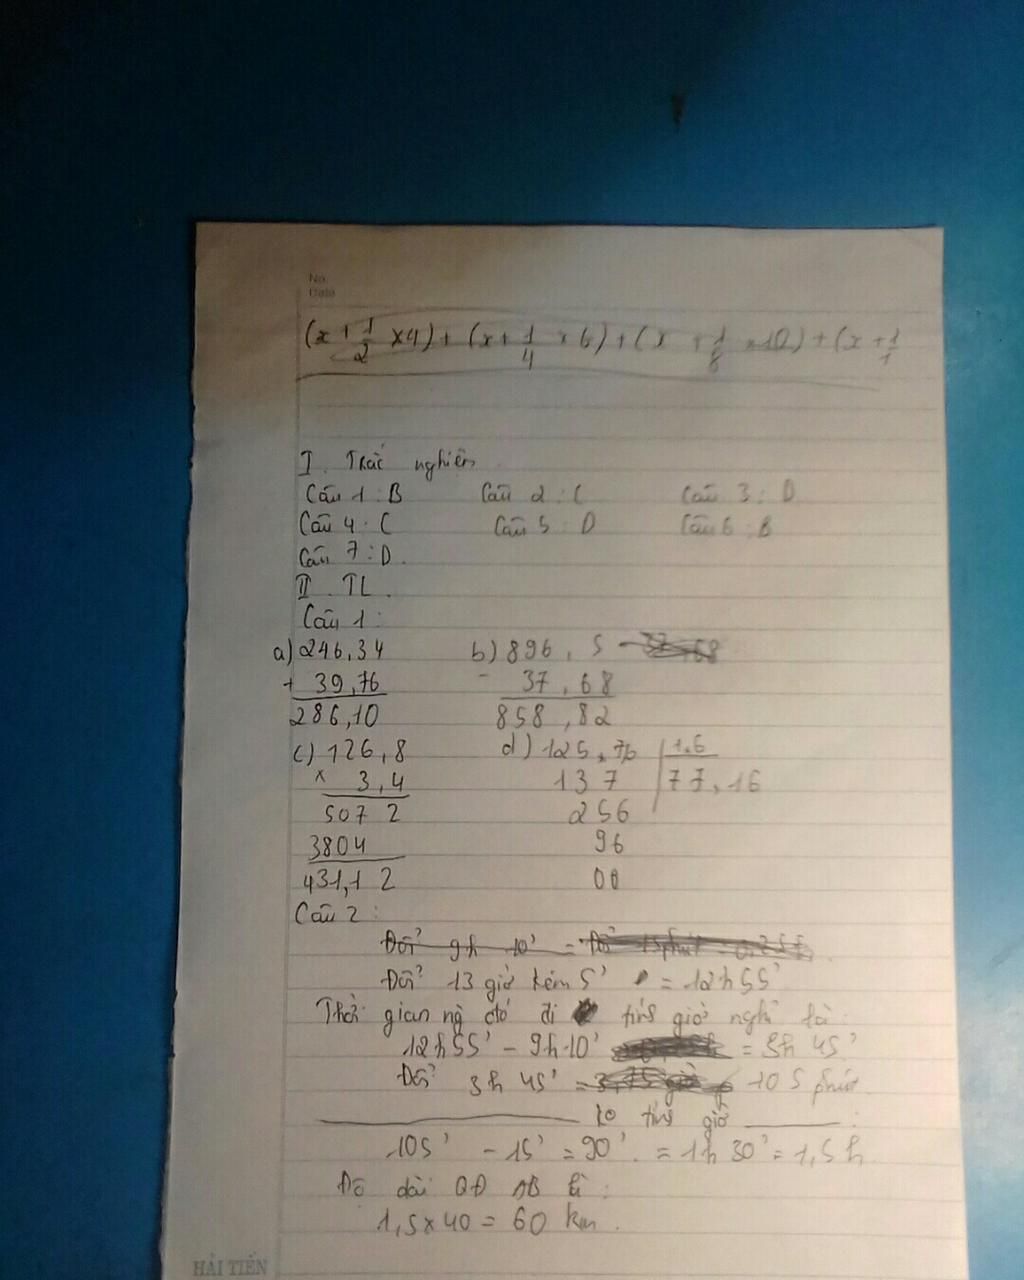 No.
Date
(x + 1/2 x4) + (x + 1/4 x 6) + (x + 1/8 x10) + (x + 1/1
I. Trắc nghiêm
Câu 1 : B Câu 2 : C Câu 3 : D
Câu 4 : C Câu 5 : D Câu 6 : B
Câu 7 : D.
II. TL.
Câu 1 :
a) 246,34 b) 896,5
+ 39,76 - 37,68
286,10 858,82
c) 126,8 d) 125,76 1,6
x 3,4 137 77,16
507 2 256
3804 96
431,1 2 00
Câu 2 :
Đổi 9h 10' =
Đổi 13 giờ kém 5' = 12h55'
Thời gian ng đó đi tính giờ nghỉ là :
12h55' - 9h10' = 3h 45'
Đổi 3h 45' = 105 phút
ko tính giờ :
105' - 15' = 90' = 1h 30' = 1,5h
Độ dài QĐ AB là :
1,5 x 40 = 60 km.
HẢI TIẾN